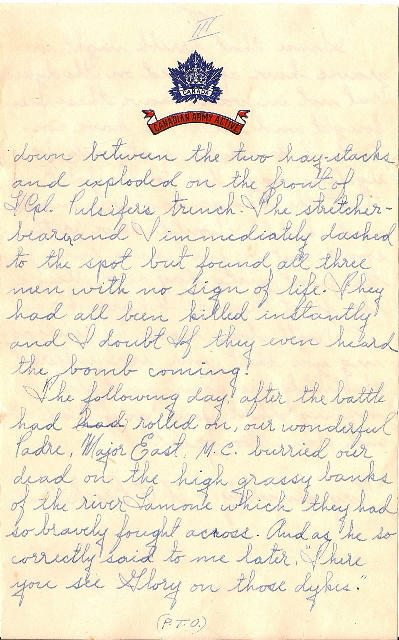 III
CANADA
CANADIAN ARMY ACTIVE
down between the two hay-stacks
and exploded on the front of
L/Cpl. Pulsifer's trench. The stretcher-
bearer and I immediately dashed
to the spot but found all three
men with no sign of life. They
had all been killed instantly
and I doubt if they even heard
the bomb coming!
The following day, after the battle
had had rolled on, our wonderful
Padre, Major East, M.C. burried our
dead on the high grassy banks
of the river Lamone which they had
so bravely fought across. And as he so
correctly said to me later, "There
you see Glory on those dykes."
(P.T.O.)